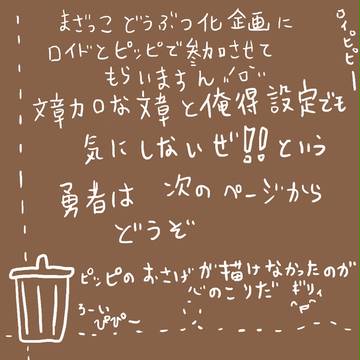 まざっこ どうぶつ化 企画に
ロイドとピッピで参加させて
もらいますん
文章力0な文章と俺得設定でも
気にしないぜ!!という
勇者は 次のページから
どうぞ
ロイピピー
ピッピのおさげが描けなかったのが
心のこりだ ギリィ
ろーい
ぴぴー